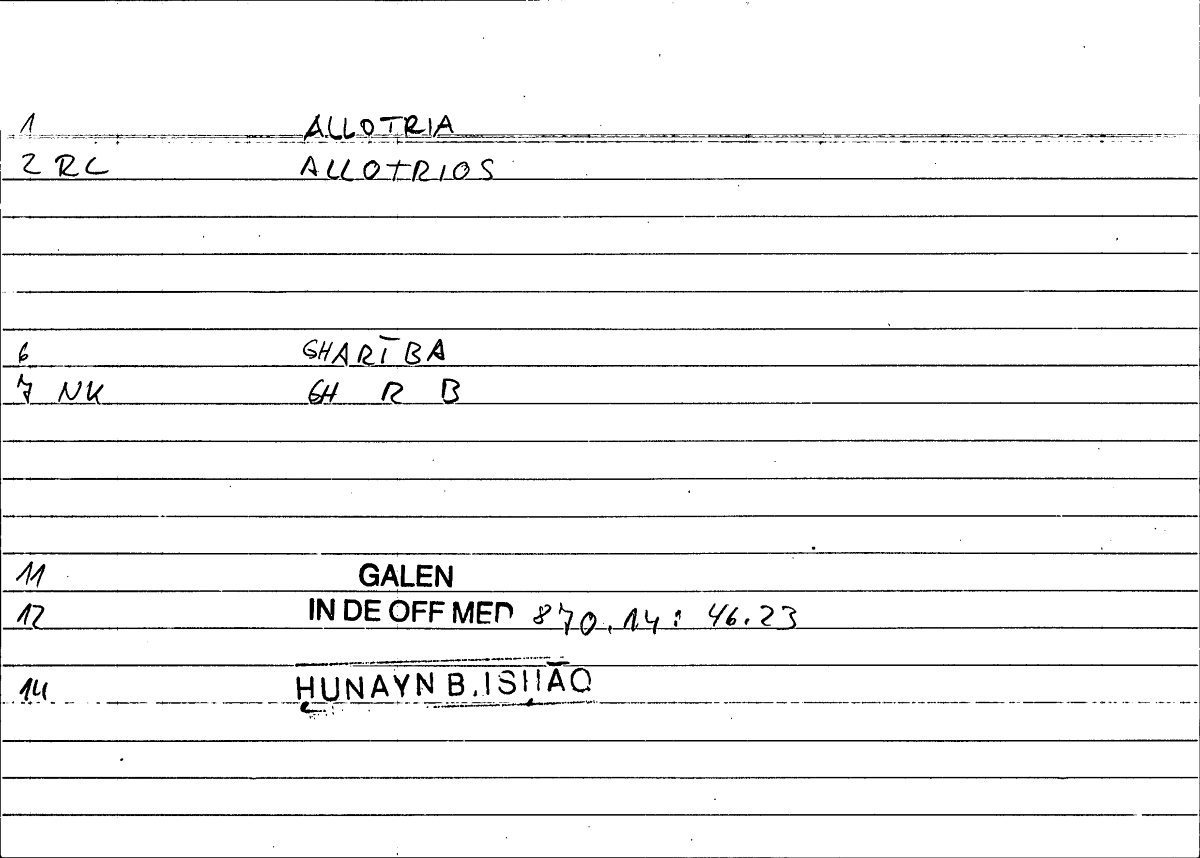 1 ALLOTRIA
2 RC ALLOTRIOS
6 GHARĪBA
7 NK GH R B
11 GALEN
12 IN DE OFF MED 870.14: 46.23
14 ḤUNAYN B. ISḤĀQ